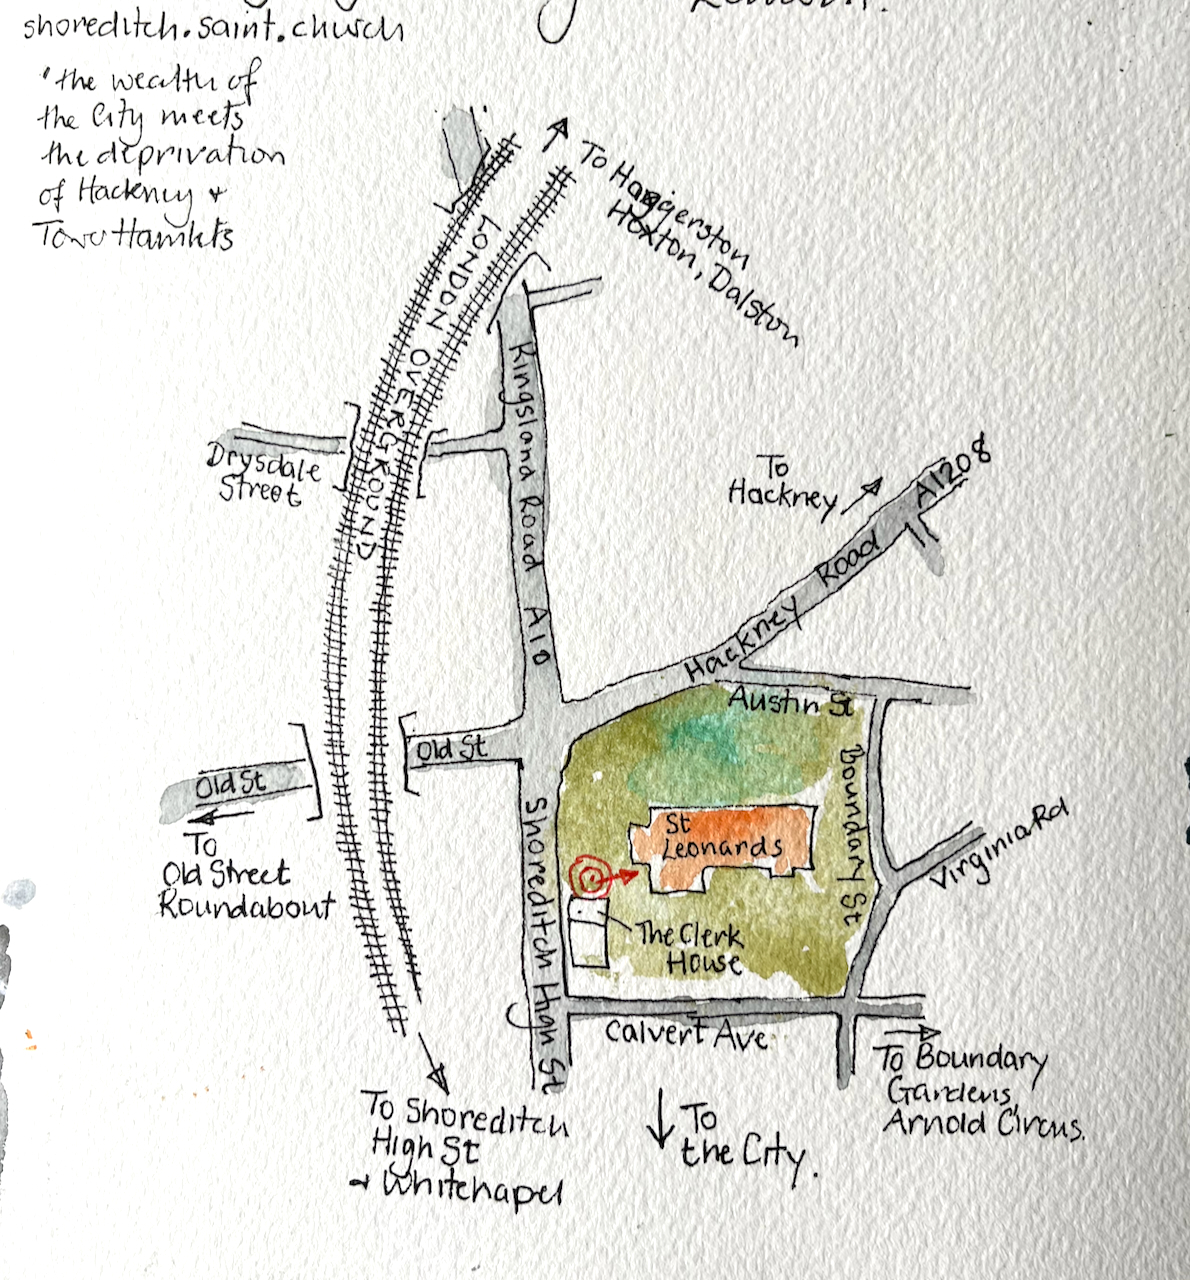 London.
shoreditch.saint.church
'the wealth of
the City meets
the deprivation
of Hackney +
Tower Hamlets
To Haggerston
Hoxton, Dalston
LONDON OVERGROUND
Kingsland Road A10
Drysdale
Street
To
Hackney
A1208
Hackney Road
Austin St
Old St
Old St
To
Old Street
Roundabout
Boundary St
St
Leonards
Virginia Rd
Shoreditch High St
The Clerk
House
Calvert Ave
To Boundary
Gardens,
Arnold Circus.
To Shoreditch
High St
+ Whitechapel
To
the City.